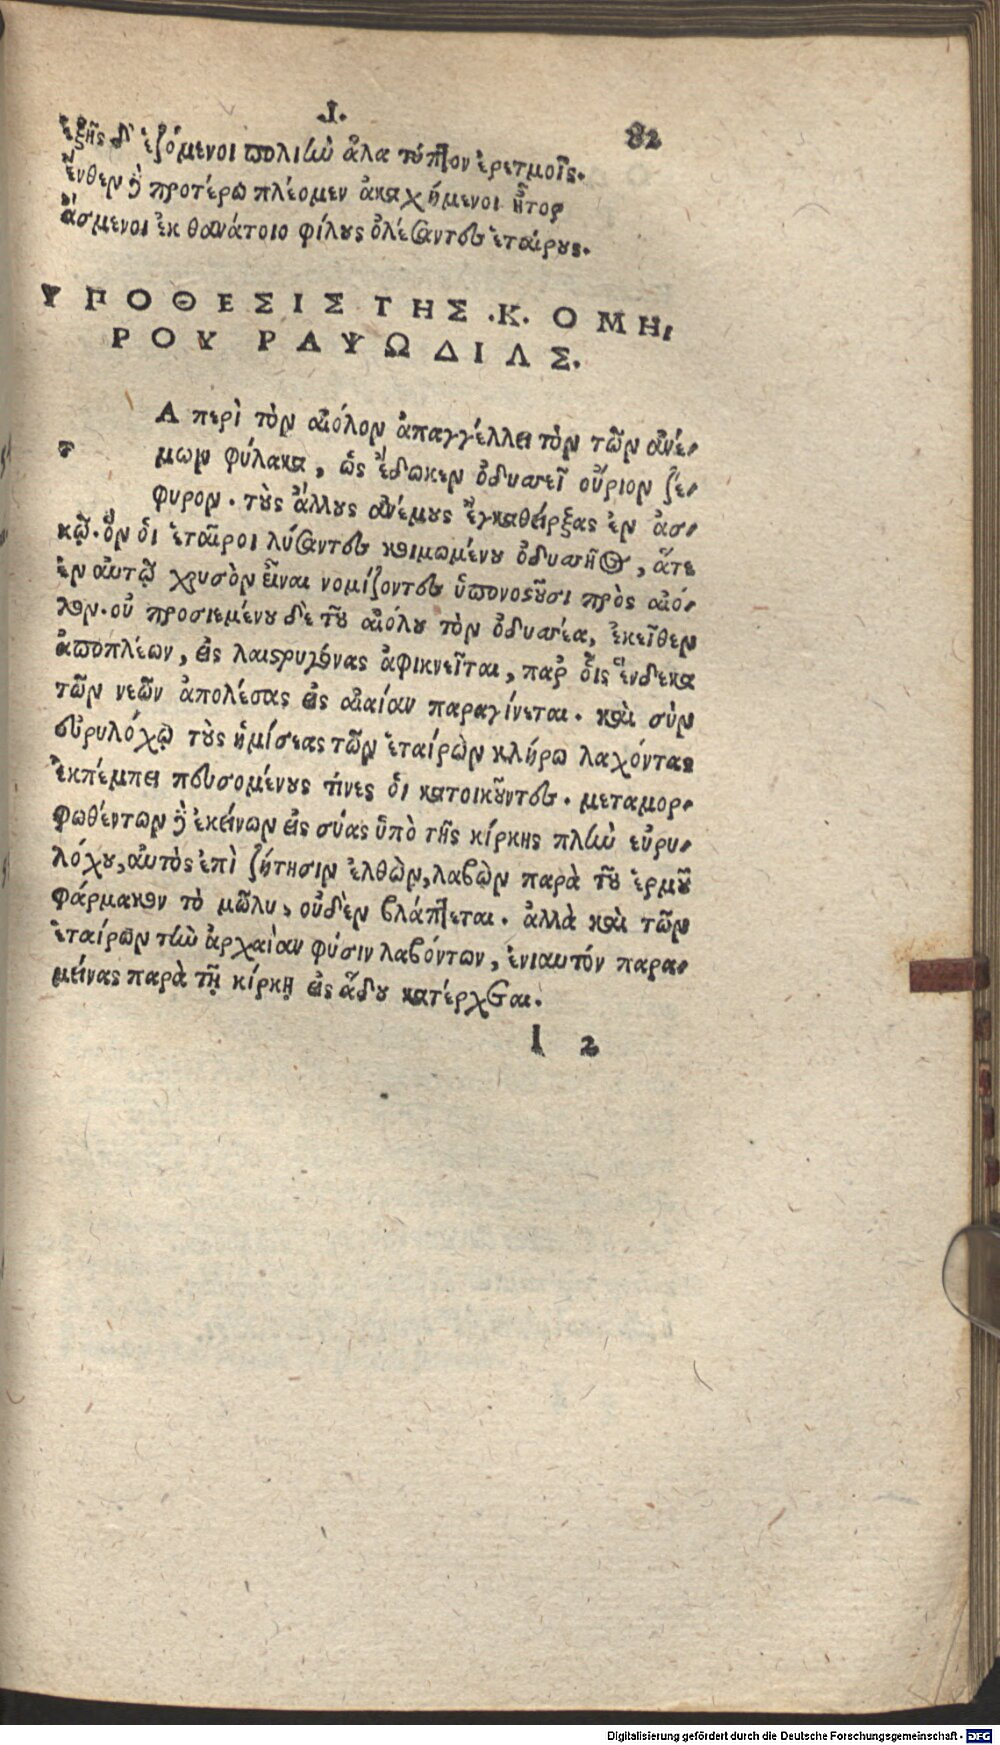 .Ι.
82
ἑξῆς δ' ἑζόμενοι πολιὴν ἅλα τύπτον ἐρετμοῖς.
ἔνθεν δὲ προτέρω πλέομεν ἀκαχήμενοι ἦτορ
ἄσμενοι ἐκ θανάτοιο φίλους ὀλέσαντες ἑταίρους.
ΥΠΟΘΕΣΙΣ ΤΗΣ .Κ. ΟΜΗ,
ΡΟΥ ΡΑΨΩΔΙΑΣ.
Α περὶ τὸν αἰόλον ἀπαγγέλλει τὸν τῶν ἀνέ-
τ μων φύλακα, ὡς ἔδωκεν ὀδυσσεῖ οὔριον ζέ-
φυρον. τοὺς ἄλλους ἀνέμους ἐγκαθείρξας ἐν ἀσ-
κῷ. ὃν ὁι ἑταῖροι λύσαντες κοιμωμένου ὀδυσσῆος, ἅτε
ἐν αὐτῷ χρυσὸν εἶναι νομίζοντες ὑπονοστοῦσι πρὸς αἰό-
λον. οὐ προσιεμένου δὲ τοῦ αἰόλου τὸν ὀδυσσέα, ἐκεῖθεν
ἀποπλέων, εἰς λαιστρυγόνας ἀφικνεῖται, παρ' οἷς ἕνδεκα
τῶν νεῶν ἀπολέσας εἰς αἰαίαν παραγίνεται. καὶ σὺν
εὐρυλόχῳ τοὺς ἡμίσεας τῶν ἑταίρὼν κλήρω λαχόντας
ἐκπέμπει πευσομένους τίνες ὁι κατοικοῦντες. μεταμορ-
φωθέντων δὲ ἐκείνων εἰς σύας ὑπὸ τῆς κίρκης πλὴν εὐρυ-
λόχου, αὐτὸς ἐπὶ ζήτησιν ἐλθὼν, λαβὼν παρὰ τοῦ ἑρμοῦ
φάρμακον τὸ μῶλυ, οὐδὲν βλάπτεται. ἀλλὰ καὶ τῶν
ἑταίρων τὴν ἀρχαίαν φύσιν λαβόντων, ἐνιαυτόν παρα-
μείνας παρὰ τῇ κίρκῃ εἰς ᾅδου κατέρχεται.
Ι 2
Digitalisierung gefördert durch die Deutsche Forschungsgemeinschaft - DFG